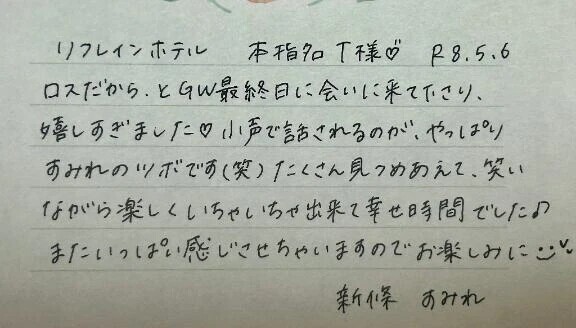 リフレインホテル 本指名T様♡ R8.5.6
ロスだから、とGW最終日に会いに来て下さり、
嬉しすぎました♡小声で話されるのが、やっぱり
すみれのツボです(笑)たくさん見つめあえて、笑い
ながら楽しくいちゃいちゃ出来て幸せ時間でした♪
またいっぱい感じさせちゃいますのでお楽しみに
新條 すみれ